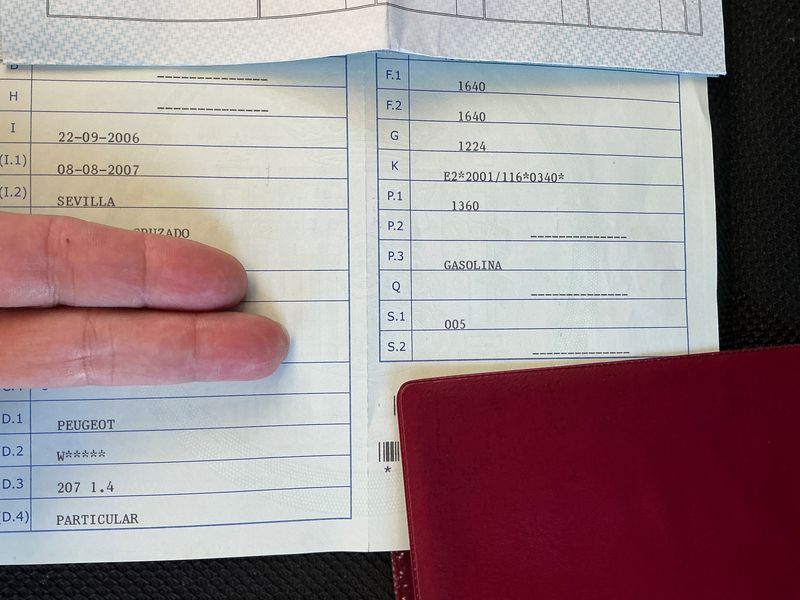 H -------------
I 22-09-2006
(I.1) 08-08-2007
(I.2) SEVILLA
D.1 PEUGEOT
D.2 W*****
D.3 207 1.4
(D.4) PARTICULAR
F.1 1640
F.2 1640
G 1224
K E2*2001/116*0340*
P.1 1360
P.2 -------------
P.3 GASOLINA
Q -------------
S.1 005
S.2 -------------
*